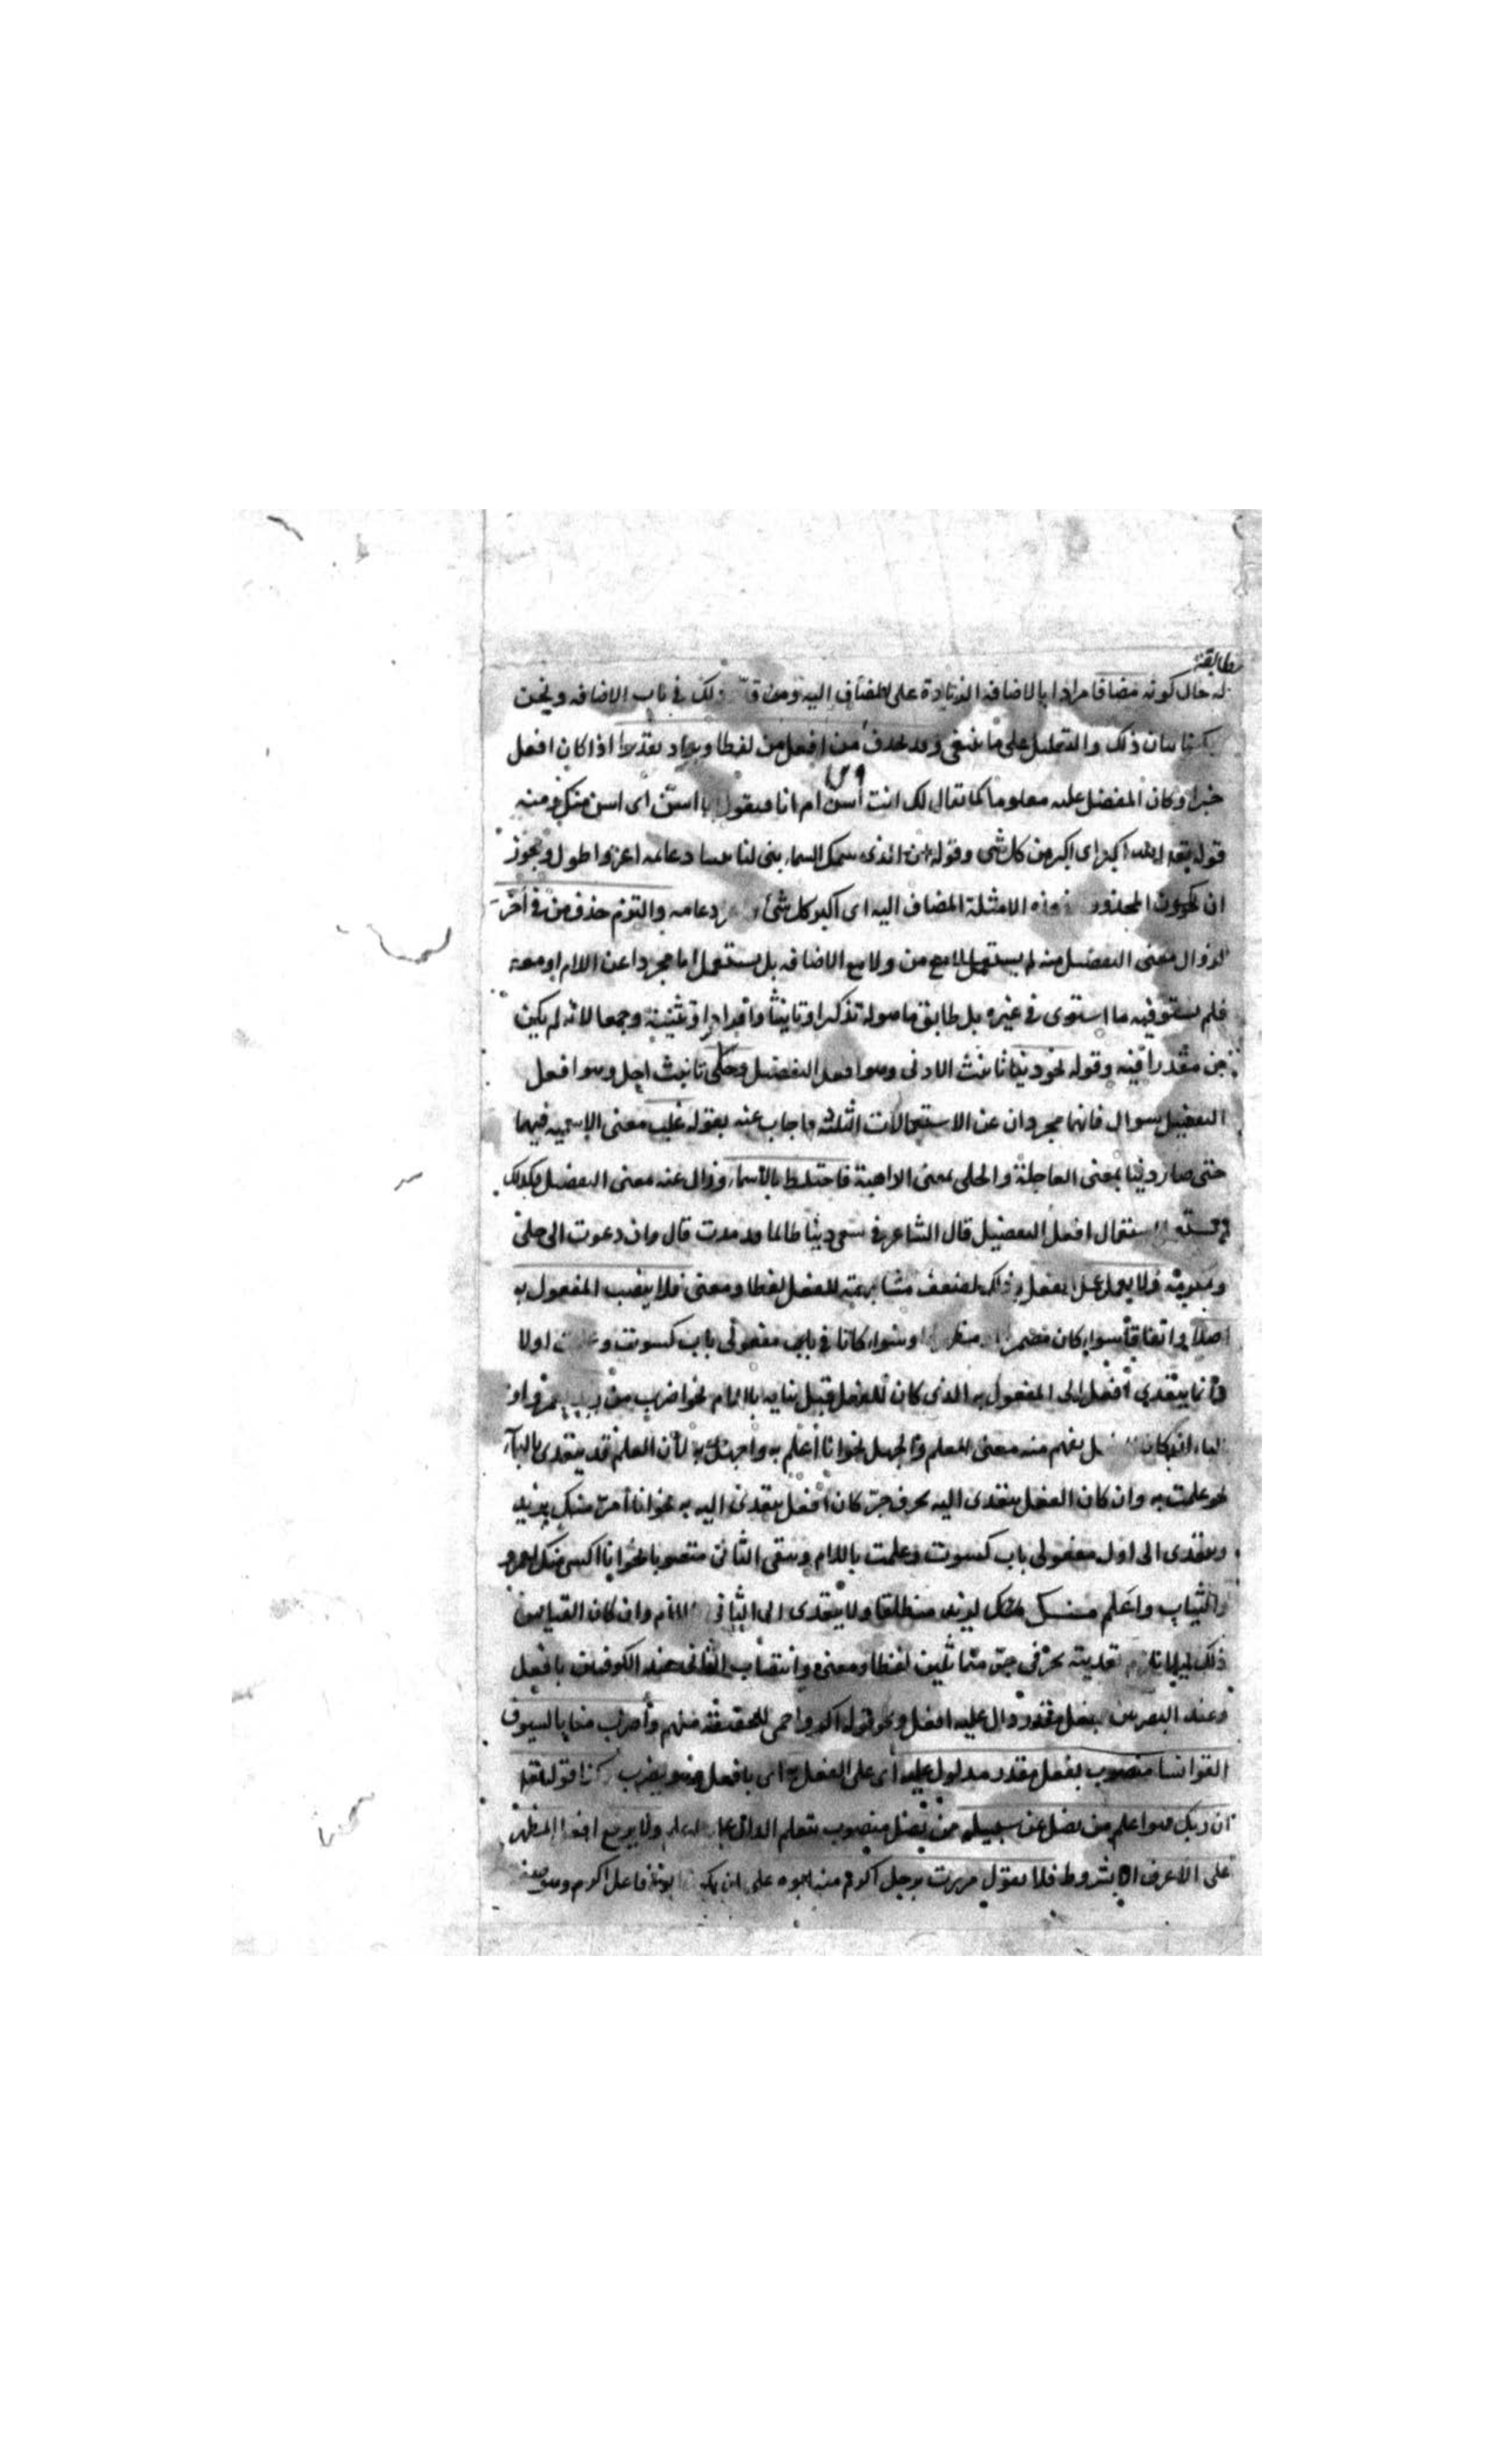 مطابقة
له حال كونه مضافا مرادا بالاضافه الزيادة على المضاف اليه ومن ذلك في باب الاضافه ونحن
بيان ذلك والتعليل على ما ينبغى وقد يحذف من افعل من لفظا ويراد تقديرا اذا كان افعل
خبرا وكان المفضل عليه معلوما كما يقال لك انت أسن ام انا فيقول اسن اى اسن منك ومنه
قوله الله اكبر اى اكبر من كل شى وقوله ان الذى سمك السماء بنى لنا بيتا دعائمه اعز واطول ويجوز
ان يكون المحذوف هذه الامثلة المضاف اليه اى اكبر كل شئ دعامه والتزم حذف من في أخر
لزوال معنى التفضيل منه لم يستعمل لا مع من ولا مع الاضافه بل يستعمل اما مجردا عن اللام او معه
فلم يستو فيه ما استوى في غيره بل طابق ما هو له تذكيرا وتأنيثا وافرادا وتثنية وجمعا لانه لم يكن
من مقدرا فيه وقوله نحو دنيا تانيث الادنى وهو افعل التفضيل وجلى تانيث اجل وهو افعل
التفضيل سوال فانهما مجردان عن الاستعمالات الثلثة فاجاب عنه بقوله غلب معنى الاسميه فيهما
حتى صار دنيا بمعنى العاجلة والجلى بمعنى الداهية فاختلط بالأسماء وزال عنه معنى التفضيل فكذلك
استعمال افعل التفضيل قال الشاعر في سعى دنيا طالما قد مدت قال وان دعوت الى جلى
ومكرمة ولا يعمل عمل الفعل وذلك لضعف مشابهته للفعل لفظا ومعنى فلا ينصب المفعول به
اصلا واتفاقا سواء كان مضمرا وسواء كانا في باب مفعولى باب كسوت اولا
وأنما يتعدى أفعل الى المفعول به الذى كان للفعل قبل بنايه باللام نحو اضرب من
كان يفهم منه معنى العلم والجهل نحو انا أعلم به واجهل به لأن العلم قد يتعدى بالباء
نحو علمت به وان كان الفعل يتعدى اليه بحرف جر كان أفعل يتعدى اليه به نحو انا أمر منك بزيد
ويتعدى الى اول مفعولى باب كسوت وعلمت باللام ويبقى الثانى منصوبا نحو انا اكسى منك لعمرو
الثياب واعلم منك لزيد منطلقا ولا يتعدى الى الثانى باللام وان كان القياس
ذلك ليلا يلزم تعديته بحرفى جر متماثلين لفظا ومعنى وانتصاب الثانى عند الكوفيين بافعل
وعند البصريين بفعل مقدر دال عليه افعل ونحو قوله اكر واحمى للحقيقة منهم وأضرب منا بالسيوف
القوانسا منصوب بفعل مقدر مدلول عليه أى على الفعل اى بافعل وهو يضرب وكذا قوله
ان ربك هو اعلم من يضل عن سبيله من يضل منصوب بتعلم الدال عليه اعلم ولا يرفع افعل المظهر
على الأعرف الا بشروط فلا يقول مررت برجل اكرم منه ابوه على ان يكون ابوه فاعل اكرم وهو صفة